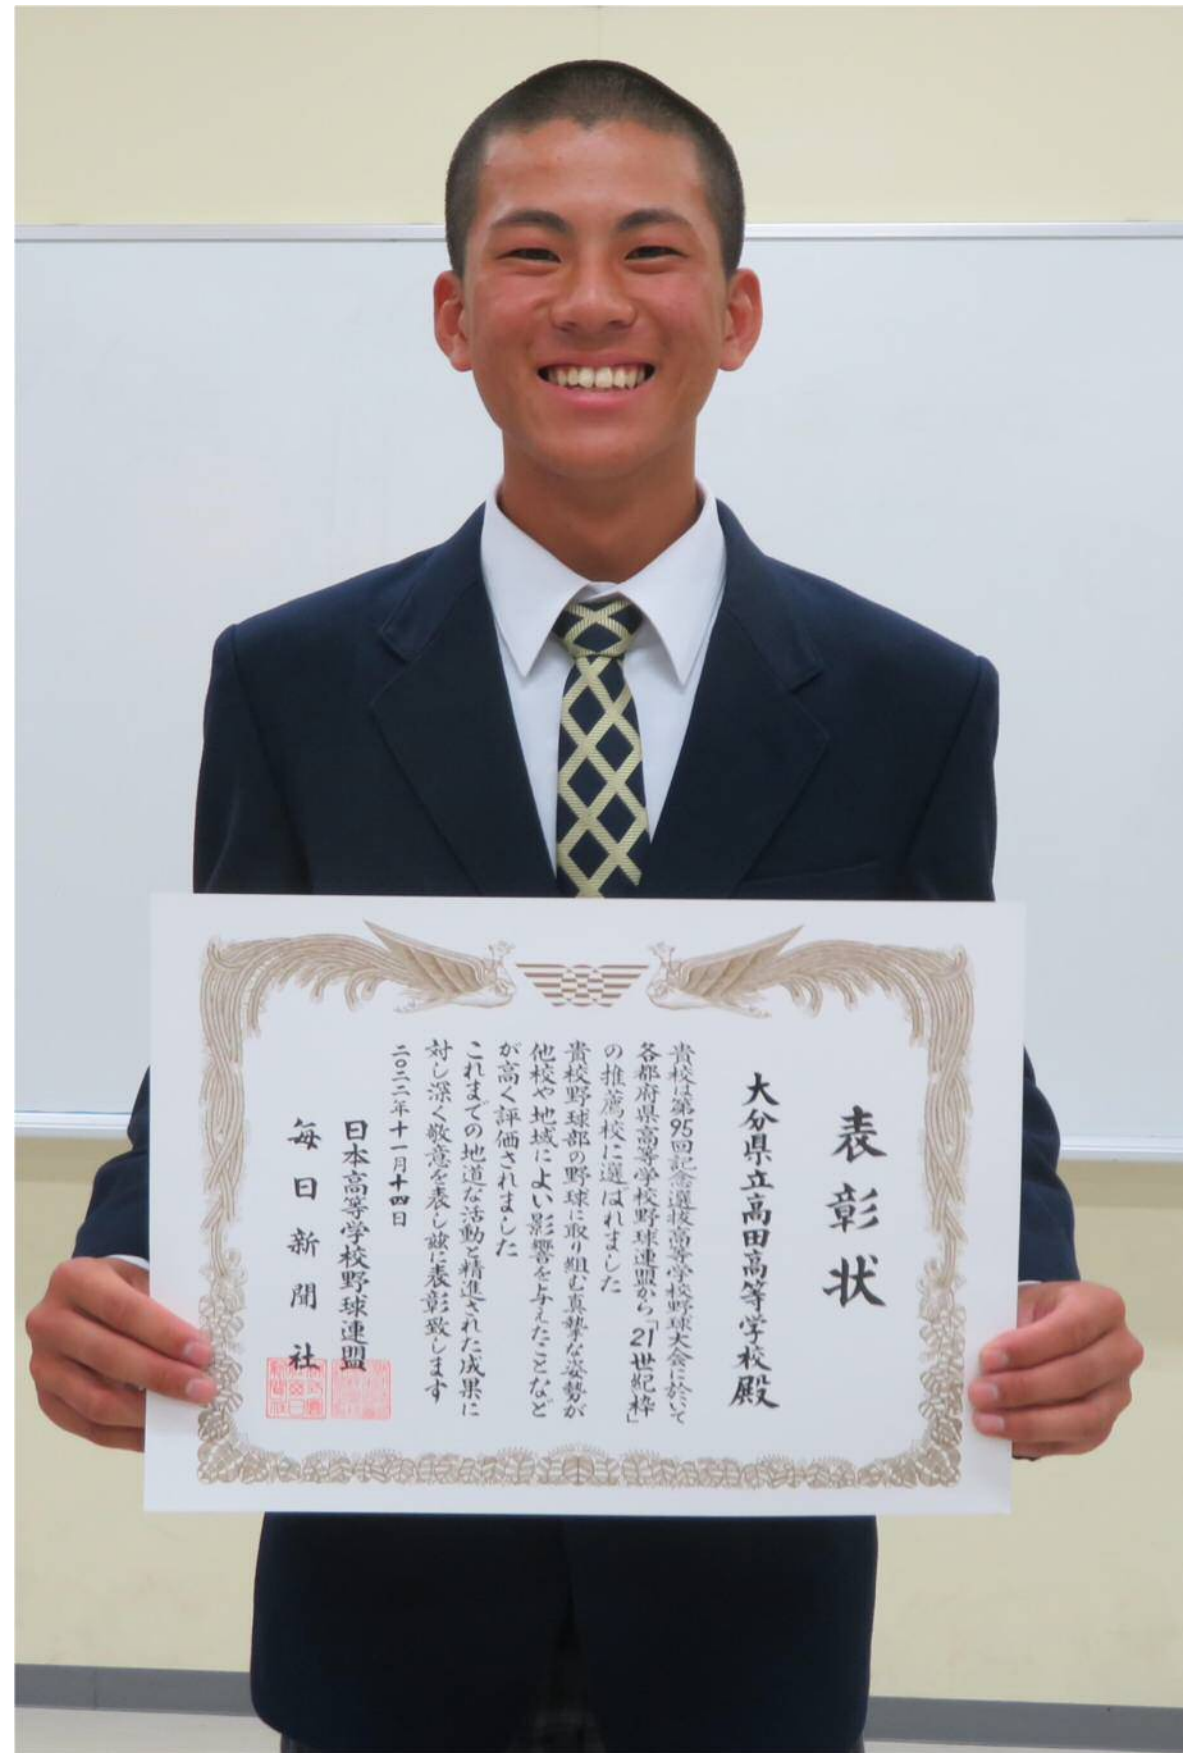 表彰状
大分県立高田高等学校殿
貴校は第95回記念選抜高等学校野球大会に於いて
各都府県高等学校野球連盟から「21世紀枠」
の推薦校に選ばれました
貴校野球部の野球に取り組む真摯な姿勢が
他校や地域によい影響を与えたことなど
が高く評価されました
これまでの地道な活動と精進された成果に
対し深く敬意を表し茲に表彰致します
二〇二二年十一月十四日
日本高等学校野球連盟
毎日新聞社